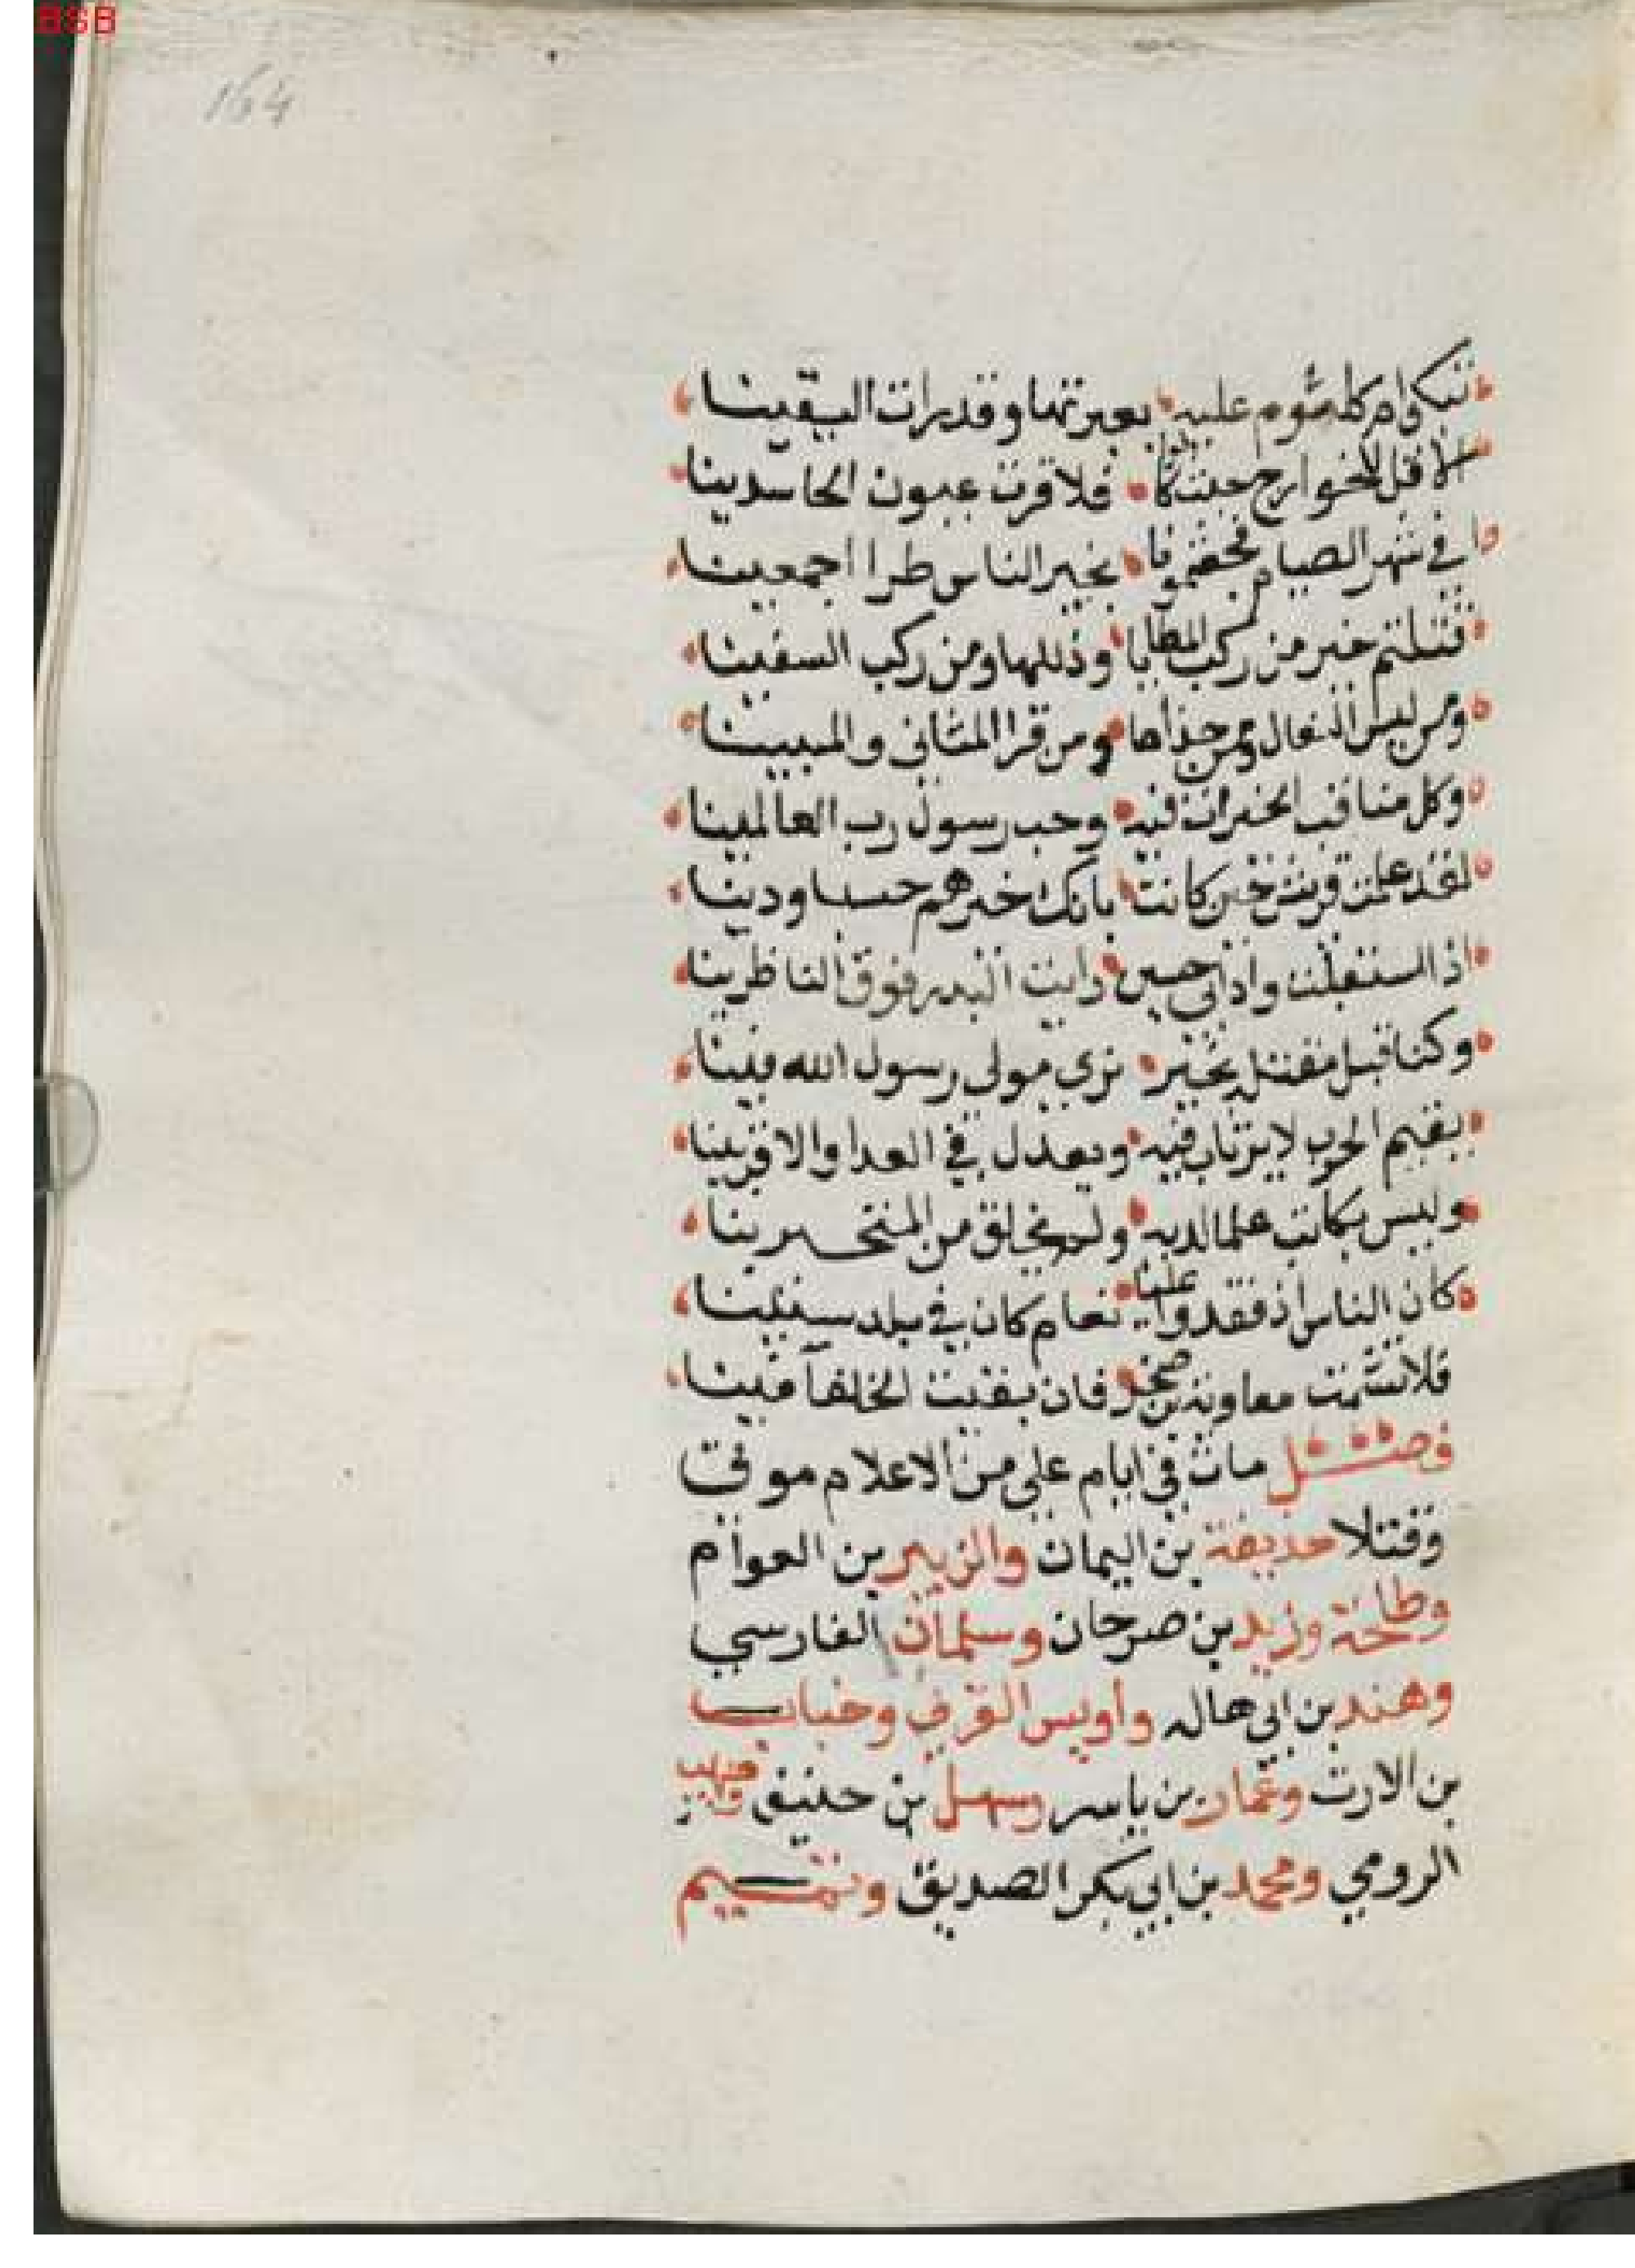 BSB
164
تبكي ام كلثوم عليه بعبرتها وقد رات اليقينا
الا قل للخوارج حيث كانوا فلا قرت عيون الحاسدينا
افي شهر الصيام فجعتمونا بخير الناس طرا اجمعينا
قتلتم خير من ركب المطايا وذللها ومن ركب السفينا
ومن لبس النعال ومن حذاها ومن قرا المثاني والمبينا
وكل مناقب الخيرات فيه وحب رسول رب العالمينا
لقد علمت قريش حين كانت بانك اخيرهم حسبا ودينا
اذا استقبلت وادابي حسين رايت البدر فوق الناظرينا
وكنا قبل مقتله بخير نري مولى رسول الله فينا
يقيم الحرب لا يرتاب فيه ويعدل في العدا والاقربينا
وليس بكاتب علما لديه ولم يخلق من المتحيرينا
كان الناس اذ فقدوا عليا نعام كان في بلد سنينا
فلا تشمت معاوية بن صخر فان بقيت الخلفا فينا
فصل مات في ايام علي من الاعلام موتى
وقتلا حذيفة بن اليمان والزبير بن العوام
وطلحة وزيد بن صرحان وسلمان الفارسي
وهند بن ابي هاله وأويس القرني وخباب
بن الارت وعمار بن ياسر وسهل بن حنيف وصهيب
الرومي ومحمد بن ابي بكر الصديق وتميم